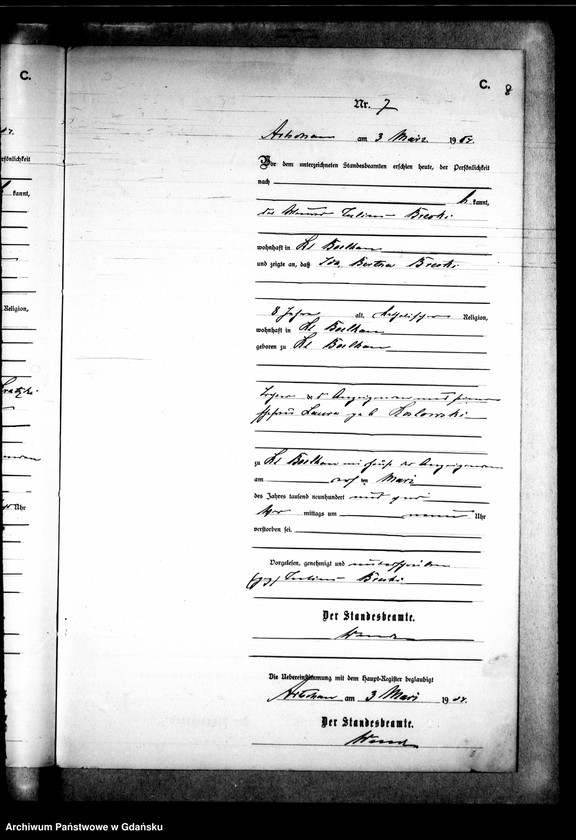 C.
C. 8
Nr. 7
am 3 März 1904.
Vor dem unterzeichneten Standesbeamten erschien heute, der Persönlichkeit
nach
kannt,
Julian Breski
wohnhaft in Kl Boelkau
und zeigte an, daß Ida, Bertha Breski
8 Jahre alt, katholischer Religion,
wohnhaft in Kl Boelkau
geboren zu Kl Boelkau
Tochter des Anzeigenden und seiner
Ehefrau Laura geb Koslowski
zu Kl Boelkau im Hause des Anzeigenden
am März
des Jahres tausend neunhundert und vier
Vor mittags um neun Uhr
verstorben sei.
Vorgelesen, genehmigt und unterschrieben
(gez) Julian Breski
Der Standesbeamte.
Die Uebereinstimmung mit dem Haupt-Register beglaubigt
am 3 März 1904.
Der Standesbeamte.
rsönlichkeit
kannt,
Religion,
Uhr
Archiwum Państwowe w Gdańsku